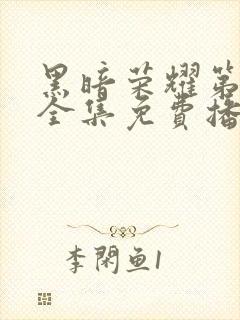 黑暗荣耀第
全集免费播
李閑鱼1